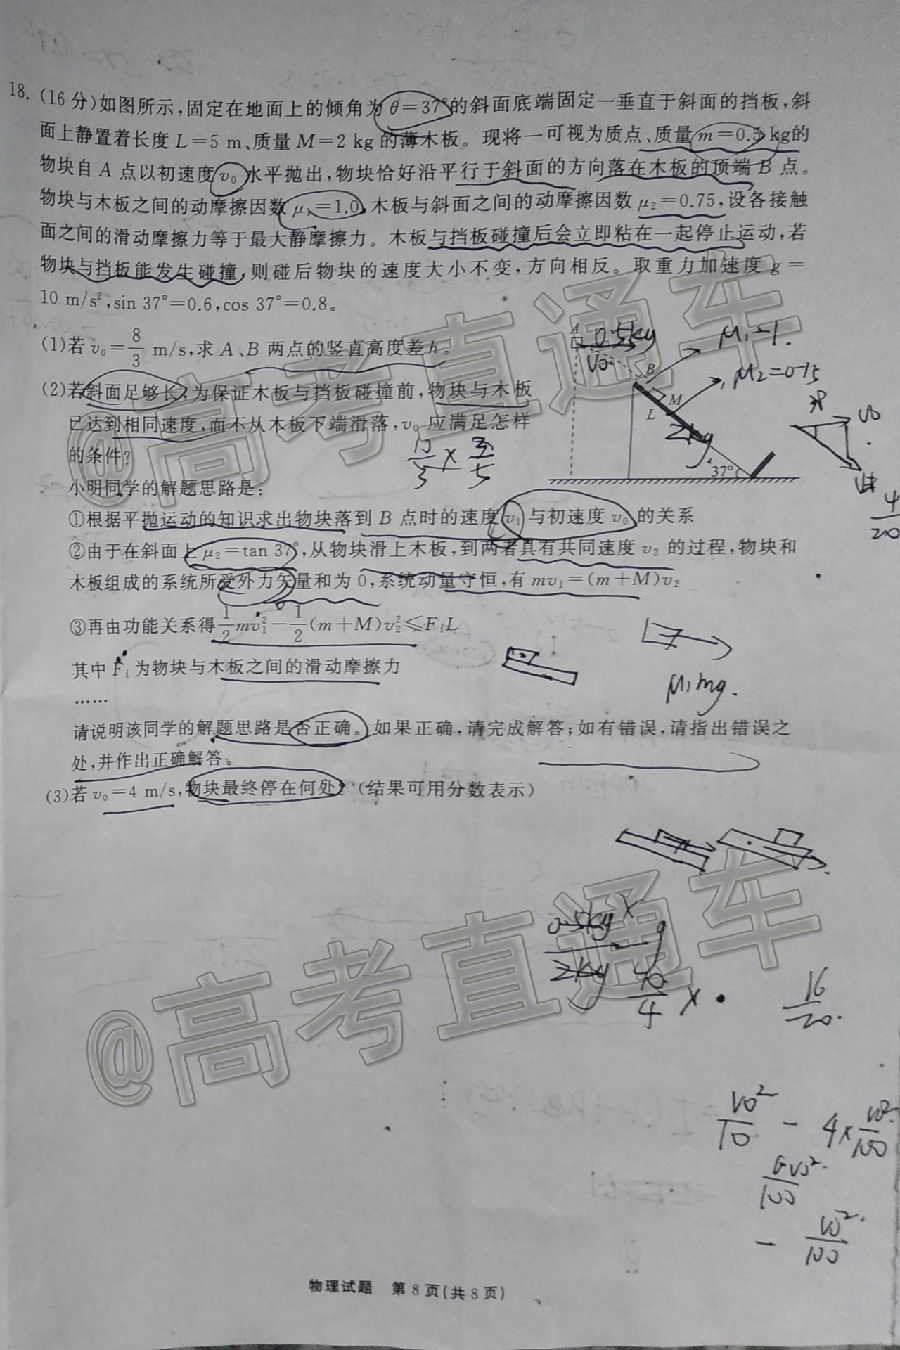 18. (16分)如图所示,固定在地面上的倾角为θ=37°的斜面底端固定一垂直于斜面的挡板,斜
面上静置着长度L=5 m、质量M=2 kg的薄木板。现将一可视为质点、质量m=0.5 kg的
物块自A点以初速度v₀水平抛出,物块恰好沿平行于斜面的方向落在木板的顶端B点。
物块与木板之间的动摩擦因数μ₁=1.0,木板与斜面之间的动摩擦因数μ₂=0.75,设各接触
面之间的滑动摩擦力等于最大静摩擦力。木板与挡板碰撞后会立即粘在一起停止运动,若
物块与挡板能发生碰撞,则碰后物块的速度大小不变,方向相反。取重力加速度g=
10 m/s²,sin 37°=0.6,cos 37°=0.8。
(1)若v₀=8/3 m/s,求A、B两点的竖直高度差h。
(2)若斜面足够长,为保证木板与挡板碰撞前,物块与木板
已达到相同速度,而不从木板下端滑落,v₀应满足怎样
的条件?
小明同学的解题思路是:
①根据平抛运动的知识求出物块落到B点时的速度v₁与初速度v₀的关系
②由于在斜面上μ₂=tan 37°,从物块滑上木板,到两者具有共同速度v₂的过程,物块和
木板组成的系统所受外力矢量和为0,系统动量守恒,有mv₁=(m+M)v₂
③再由功能关系得1/2mv₁²−1/2(m+M)v₂²≤F₁L
其中F₁为物块与木板之间的滑动摩擦力
……
请说明该同学的解题思路是否正确。如果正确,请完成解答;如有错误,请指出错误之
处,并作出正确解答。
(3)若v₀=4 m/s,物块最终停在何处?(结果可用分数表示)
A
0.5kg
v₀
B
M
L
2kg
37°
μ₁=1.
μ₂=0.75
4/20
μ₁mg.
0.5kg
2kg
40/4 ×
16/20.
v₀²/10 − 4×v₀²/100
6v₀²/100
− v₀²/100
@高考直通车
@高考直通车
物理试题 第8页(共8页)